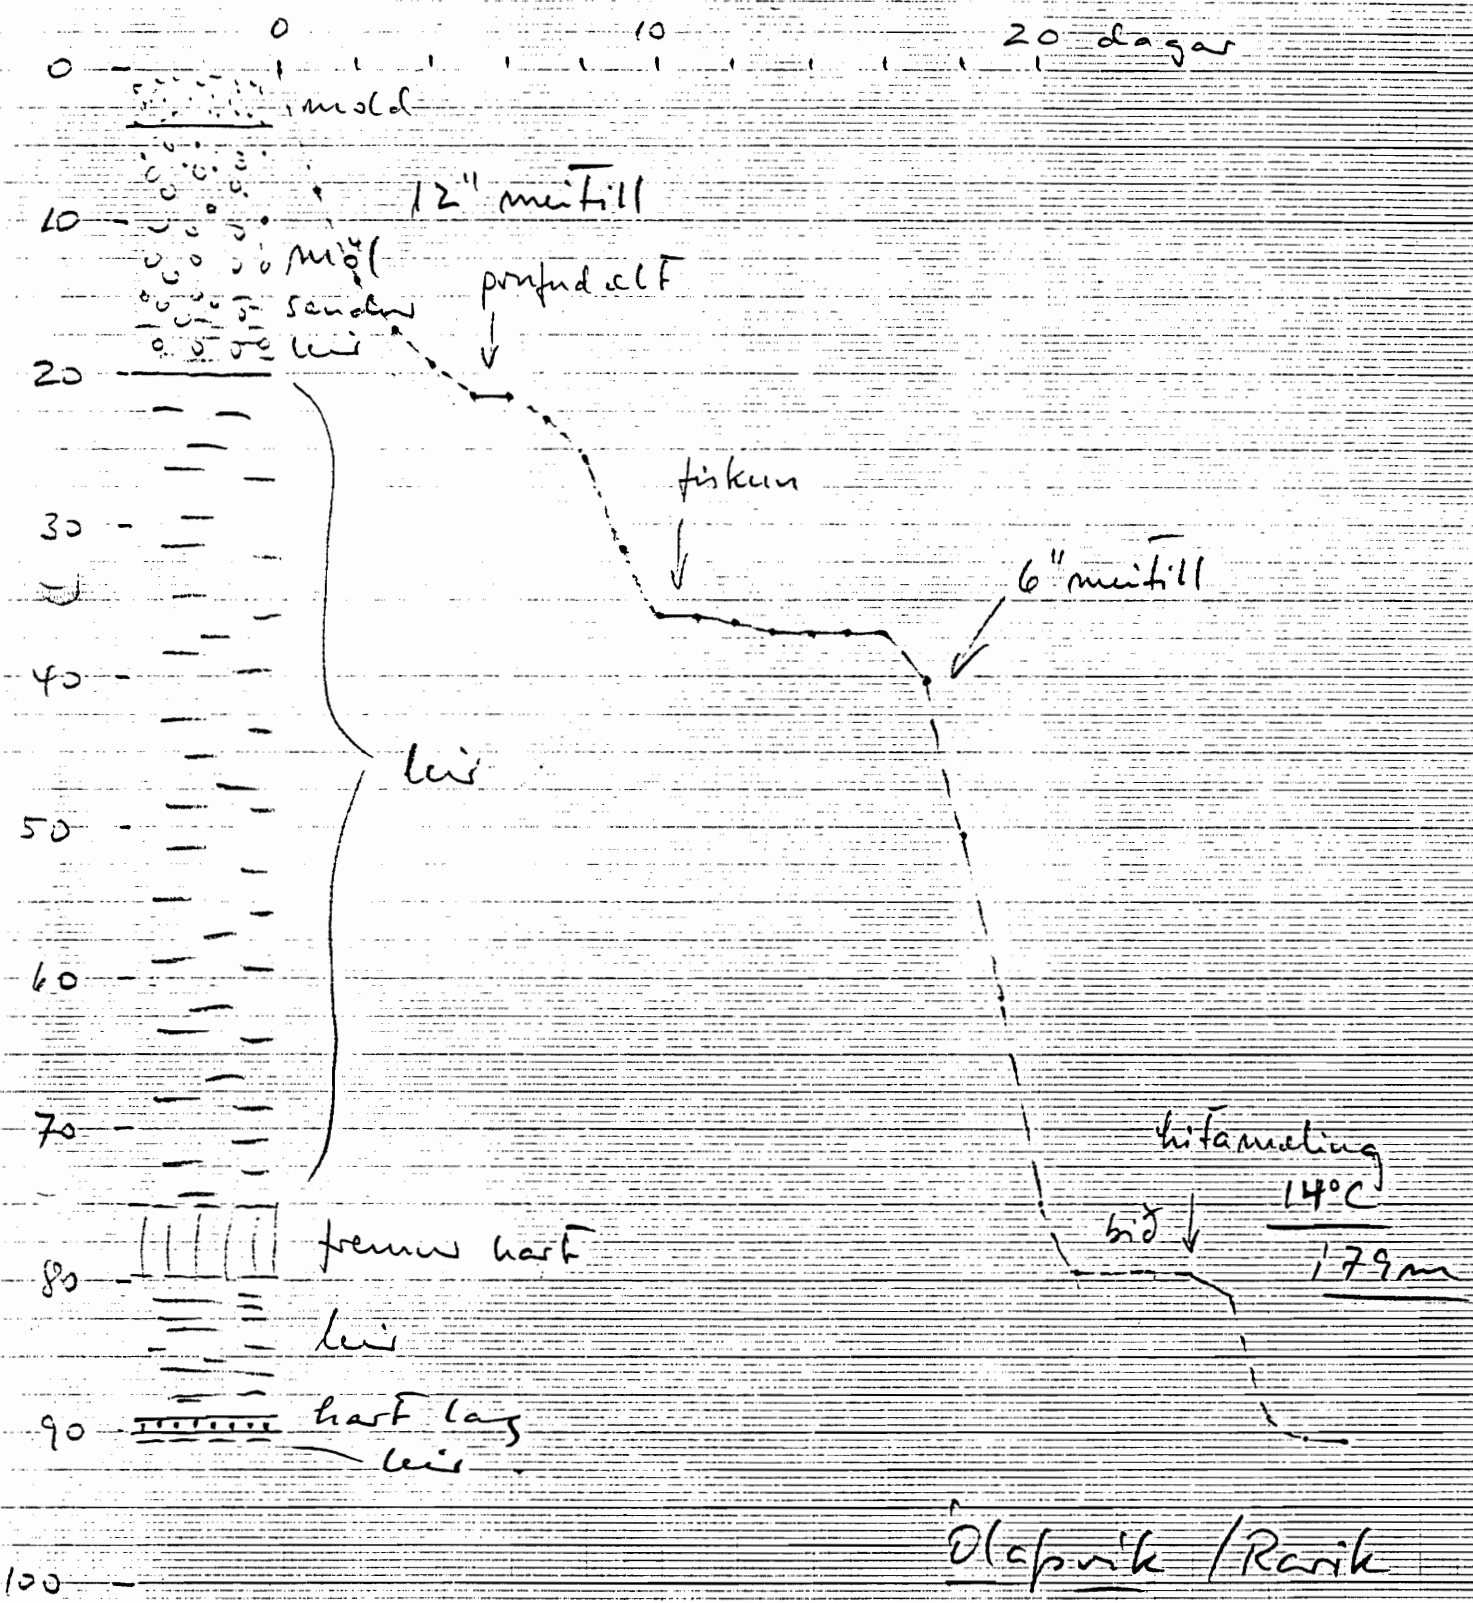 0 10 20 dagar
0
mold
12" meitill
10
möl
sandur
leir
20
30
fiskun
6" meitill
40
leir
50
60
70
hitamæling
14°C
bið
79m
fremur hart
80
leir
hart lag
90
leir
Ólafsvík / Rarik
100